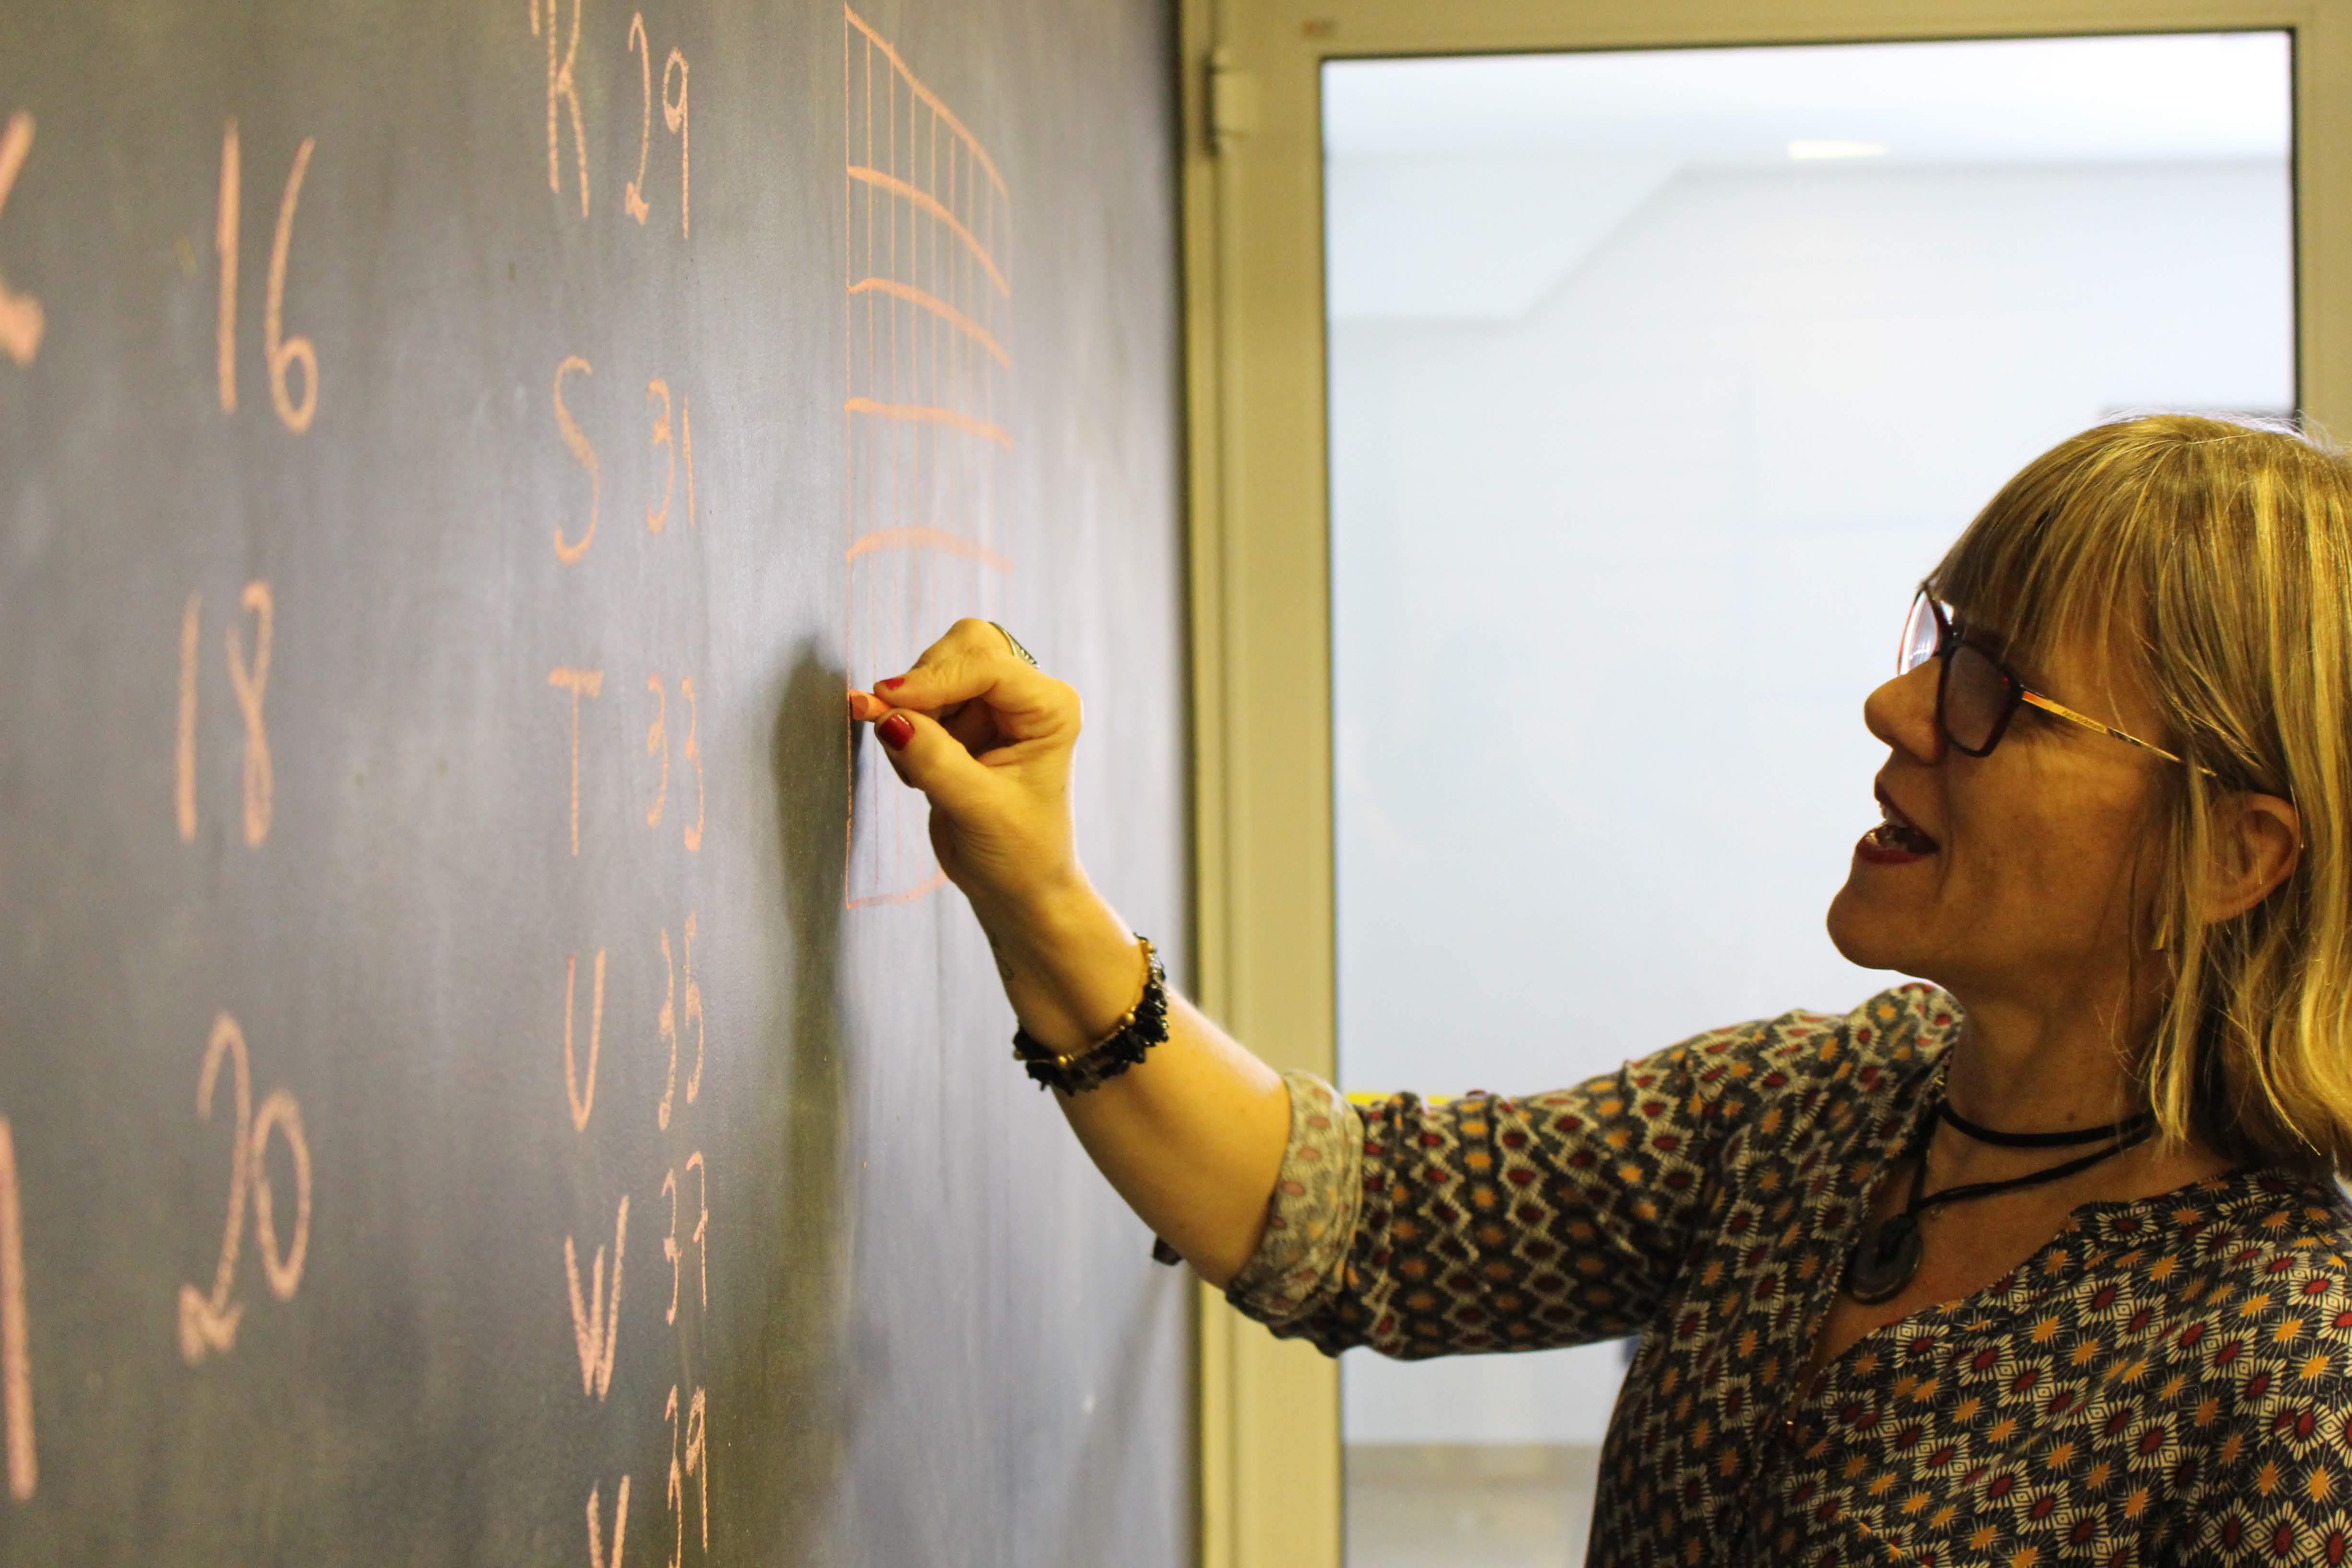 16
18
20
R 29
S 31
T 33
U 35
W 37
V 39